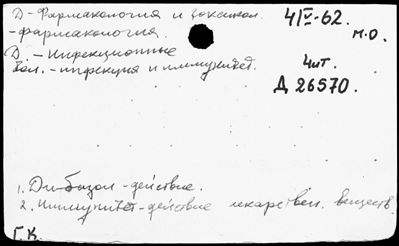 Д-Фармакология и токсикол. 4/V-62.
-фармакология. М.О.
Д. - Инфекционные
бол. - инфекция и иммунитет. 4шт.
Д 26570.
1. Ди-базол - действие.
2. Иммунитет - действие лекарствен. веществ.
Г.К.